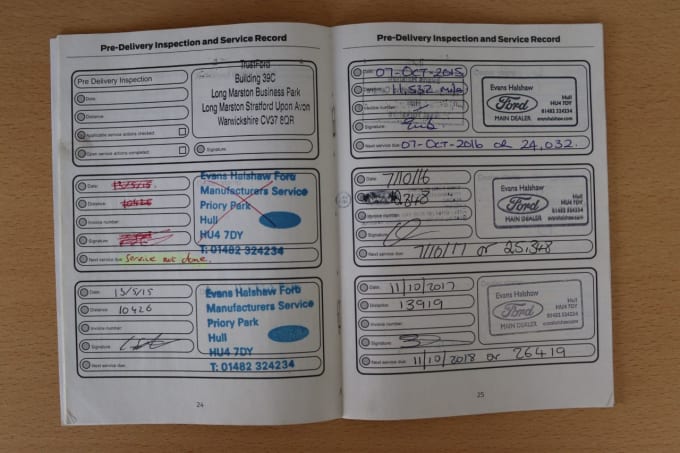 Pre-Delivery Inspection and Service Record
Pre Delivery Inspection
Date
Distance
Applicable service actions checked
Open service actions completed
TrustFord
Building 39C
Long Marston Business Park
Long Marston Stratford Upon Avon
Warwickshire CV37 8QR
Signature
Date: 13/5/15
Distance: 10426
Invoice number
Signature
Next service due Service not done.
Evans Halshaw Ford
Manufacturers Service
Priory Park
Hull
HU4 7DY
T: 01482 324234
Date: 13/5/15
Distance 10426
Invoice number
Signature
Next service due:
Evans Halshaw Ford
Manufacturers Service
Priory Park
Hull
HU4 7DY
T: 01482 324234
24
Pre-Delivery Inspection and Service Record
Date: 07-OCT-2015
11,532
Invoice number
Signature
Next service due: 07-OCT-2016 or 24,032.
Evans Halshaw
Ford
MAIN DEALER
Hull
HU4 7DY
01482 324234
www.evanshalshaw.com
Date: 7/10/16
Invoice number
Signature
Next service due 7/10/17 or 25,348
Evans Halshaw
Ford
MAIN DEALER
Hull
HU4 7DY
01482 324234
Date: 11/10/2017
Distance: 13919
Invoice number
Signature
Next service due: 11/10/2018 or 26419
Evans Halshaw
Ford
MAIN DEALER
Hull
HU4 7DY
01482 324234
25